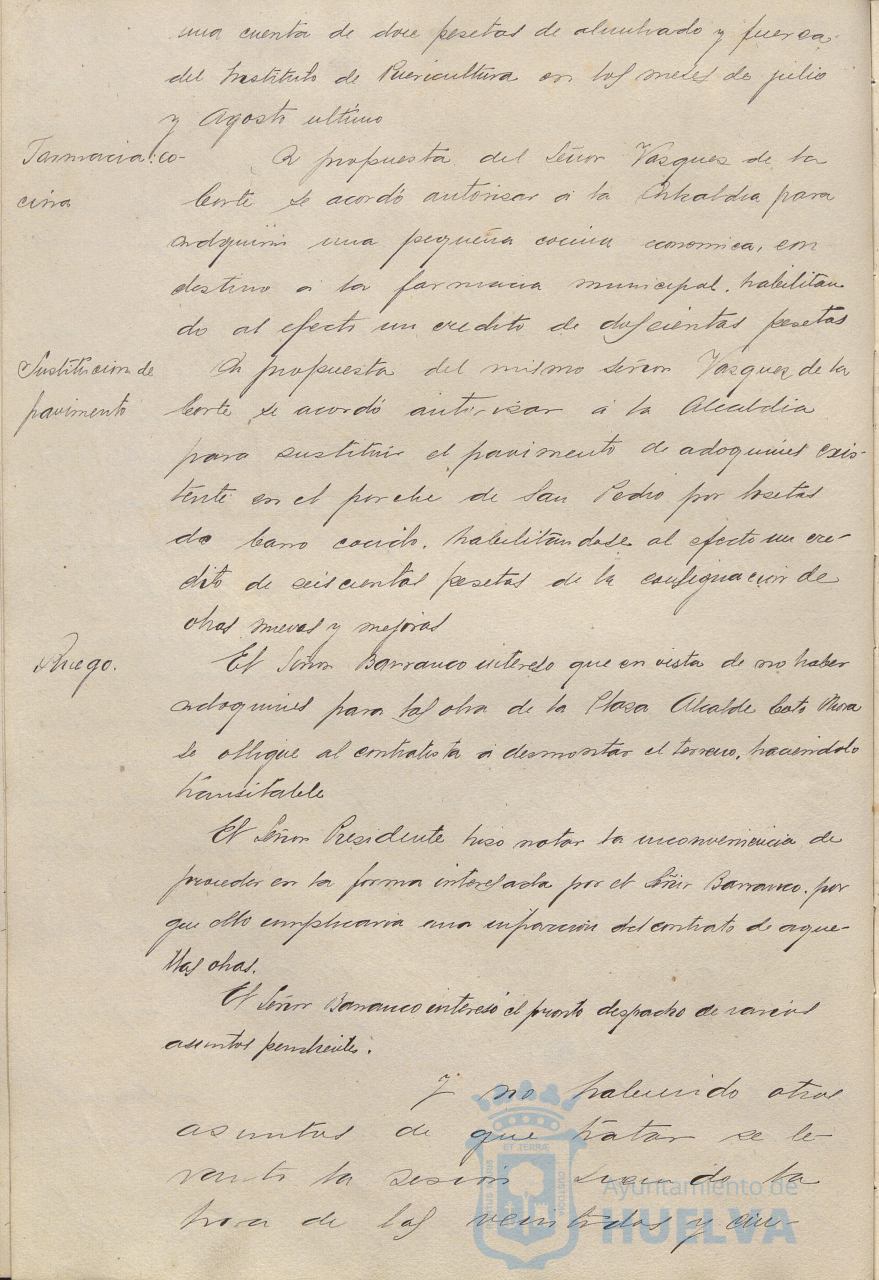 una cuenta de doce pesetas de alumbrado y fuerza
del Instituto de Puericultura en los meses de julio
y Agosto ultimo
Farmacia: co-
cina
A propuesta del Señor Vazquez de la
Corte se acordó autorizar a la Alcaldia para
adquirir una pequeña cocina economica, con
destino a la farmacia municipal, habilitan
do al efecto un credito de doscientas pesetas
Sustitucion de
pavimento
A propuesta del mismo Señor Vazquez de la
Corte se acordó autorizar a la Alcaldia
para sustituir el pavimento de adoquines exis-
tente en el porche de San Pedro por losetas
de barro cocido, habilitandose al efecto un cre-
dito de seiscientas pesetas de la consignacion de
obras nuevas y mejoras
Ruego.
El Señor Barranco intereso que en vista de no haber
adoquines para las obra de la Plaza Alcalde Coto Mora
se obligue al contratista a desmontar el terreno, haciendolo
transitable
El Señor Presidente hizo notar la inconveniencia de
proceder en la forma interesada por el Señor Barranco, por
que ello implicaria una infraccion del contrato de aque-
llas obras.
El Señor Barranco interesó el pronto despacho de varios
asuntos pendientes.
Y no habiendo otros
asuntos de que tratar se le-
vantó la sesion siendo la
hora de las veintidos y cin-
SIGILLUM
ET TERRAE
CUSTODIA
Ayuntamiento de
HUELVA